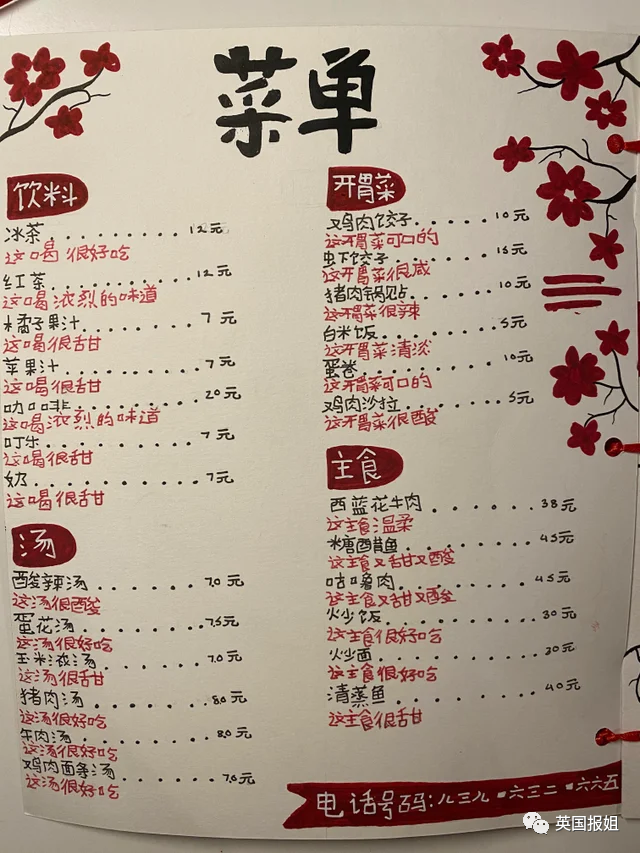 菜单
饮料
冰茶 12元
这喝很好吃
红茶 12元
这喝浓烈的味道
橘子果汁 7元
这喝很甜
苹果汁 7元
这喝很甜
咖啡 20元
这喝浓烈的味道
可乐 7元
这喝很甜
奶 7元
这喝很甜
汤
酸辣汤 7.0元
这汤很酸
蛋花汤 7.5元
这汤很好吃
玉米浓汤 7.0元
这汤很甜
猪肉汤 8.0元
这汤很好吃
牛肉汤 8.0元
这汤很好吃
鸡肉面条汤 7.0元
这汤很好吃
开胃菜
鸡肉饺子 10元
这开胃菜可口的
虫下饺子 15元
这开胃菜很咸
猪肉锅贴 10元
这开胃菜很辣
白米饭 5元
这开胃菜清淡
蛋卷 10元
这开胃菜可口的
鸡肉沙拉 5元
这开胃菜很酸
主食
西蓝花牛肉 38元
这主食温柔
糖醋鱼 45元
这主食又甜又酸
咕噜肉 45元
这主食又甜又酸
炒饭 30元
这主食很好吃
炒面 30元
这主食很好吃
清蒸鱼 40元
这主食很甜
电话号码:八三八-六三二-六六五
英国报姐